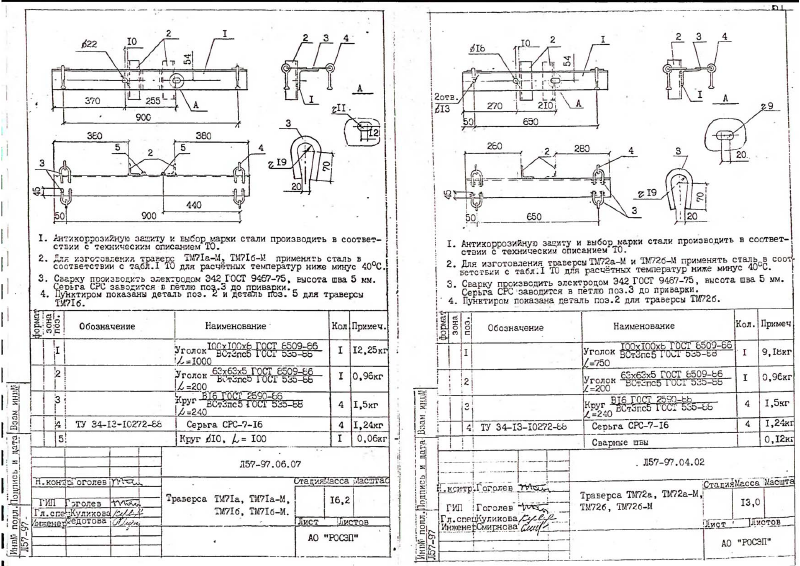 ø22
10
2
1
54
А
370
255
900
2
3
4
1
А
ø11
12
380
5
2
5
380
4
3
45
440
50
900
3
ø19
70
20
1. Антикоррозийную защиту и выбор марки стали производить в соответ-
ствии с техническим описанием ТО.
2. Для изготовления траверс ТМ71а-М, ТМ71б-М применять сталь в
соответствии с табл.1 ТО для расчётных температур ниже минус 40°С.
3. Сварку производить электродом Э42 ГОСТ 9467-75, высота шва 5 мм.
Серьга СРС заводится в петлю поз.3 до приварки.
4. Пунктиром показаны деталь поз. 2 и деталь поз. 5 для траверсы
ТМ71б.
формат зона поз. Обозначение Наименование Кол. Примеч.
1 Уголок 100х100х8 ГОСТ 8509-86 / ВСт3пс5 ГОСТ 535-88 1 12,25кг
ℓ=1000
2 Уголок 63х63х5 ГОСТ 8509-86 / ВСт3пс5 ГОСТ 535-88 1 0,96кг
ℓ=200
3 Круг В16 ГОСТ 2590-88 / ВСт3пс5 ГОСТ 535-88 4 1,5кг
ℓ=240
4 ТУ 34-13-10272-88 Серьга СРС-7-16 4 1,24кг
5 Круг ø10, ℓ = 100 1 0,06кг
Л57-97.06.07
Н.контр Гоголев
ГИП Гоголев
Гл.спец Куликова
Инженер Федотова
Траверса ТМ71а, ТМ71а-М,
ТМ71б, ТМ71б-М.
Стадия Масса Масштаб
16,2
Лист Листов
АО "РОСЭП"
Инв№ подл. Подпись и дата Взам инв№
Л57-97
ø16
10
2
1
54
2отв.
ø13
А
270
210
50
650
2
3
4
1
А
ø9
20
280
2
280
4
45
3
50
650
3
ø19
70
20
1. Антикоррозийную защиту и выбор марки стали производить в соответ-
ствии с техническим описанием ТО.
2. Для изготовления траверсы ТМ72а-М и ТМ72б-М применять сталь в соот
ветствии с табл.1 ТО для расчётных температур ниже минус 40°С.
3. Сварку производить электродом Э42 ГОСТ 9467-75, высота шва 5 мм.
Серьга СРС заводится в петлю поз.3 до приварки.
4. Пунктиром показана деталь поз.2 для траверсы ТМ72б.
формат зона поз. Обозначение Наименование Кол. Примеч.
1 Уголок 100х100х8 ГОСТ 8509-86 / ВСт3пс5 ГОСТ 535-88 1 9,18кг
ℓ=750
2 Уголок 63х63х5 ГОСТ 8509-86 / ВСт3пс5 ГОСТ 535-88 1 0,96кг
ℓ=200
3 Круг В16 ГОСТ 2590-88 / ВСт3пс5 ГОСТ 535-88 4 1,5кг
ℓ=240
4 ТУ 34-13-10272-88 Серьга СРС-7-16 4 1,24кг
Сварные швы 0,12кг
Л57-97.04.02
Н.контр. Гоголев
ГИП Гоголев
Гл.спец Куликова
Инженер Смирнова
Траверса ТМ72а, ТМ72а-М,
ТМ72б, ТМ72б-М
Стадия Масса Масштаб
13,0
Лист Листов
АО "РОСЭП"
Инв№ подл. Подпись и дата Взам инв№
Л57-97